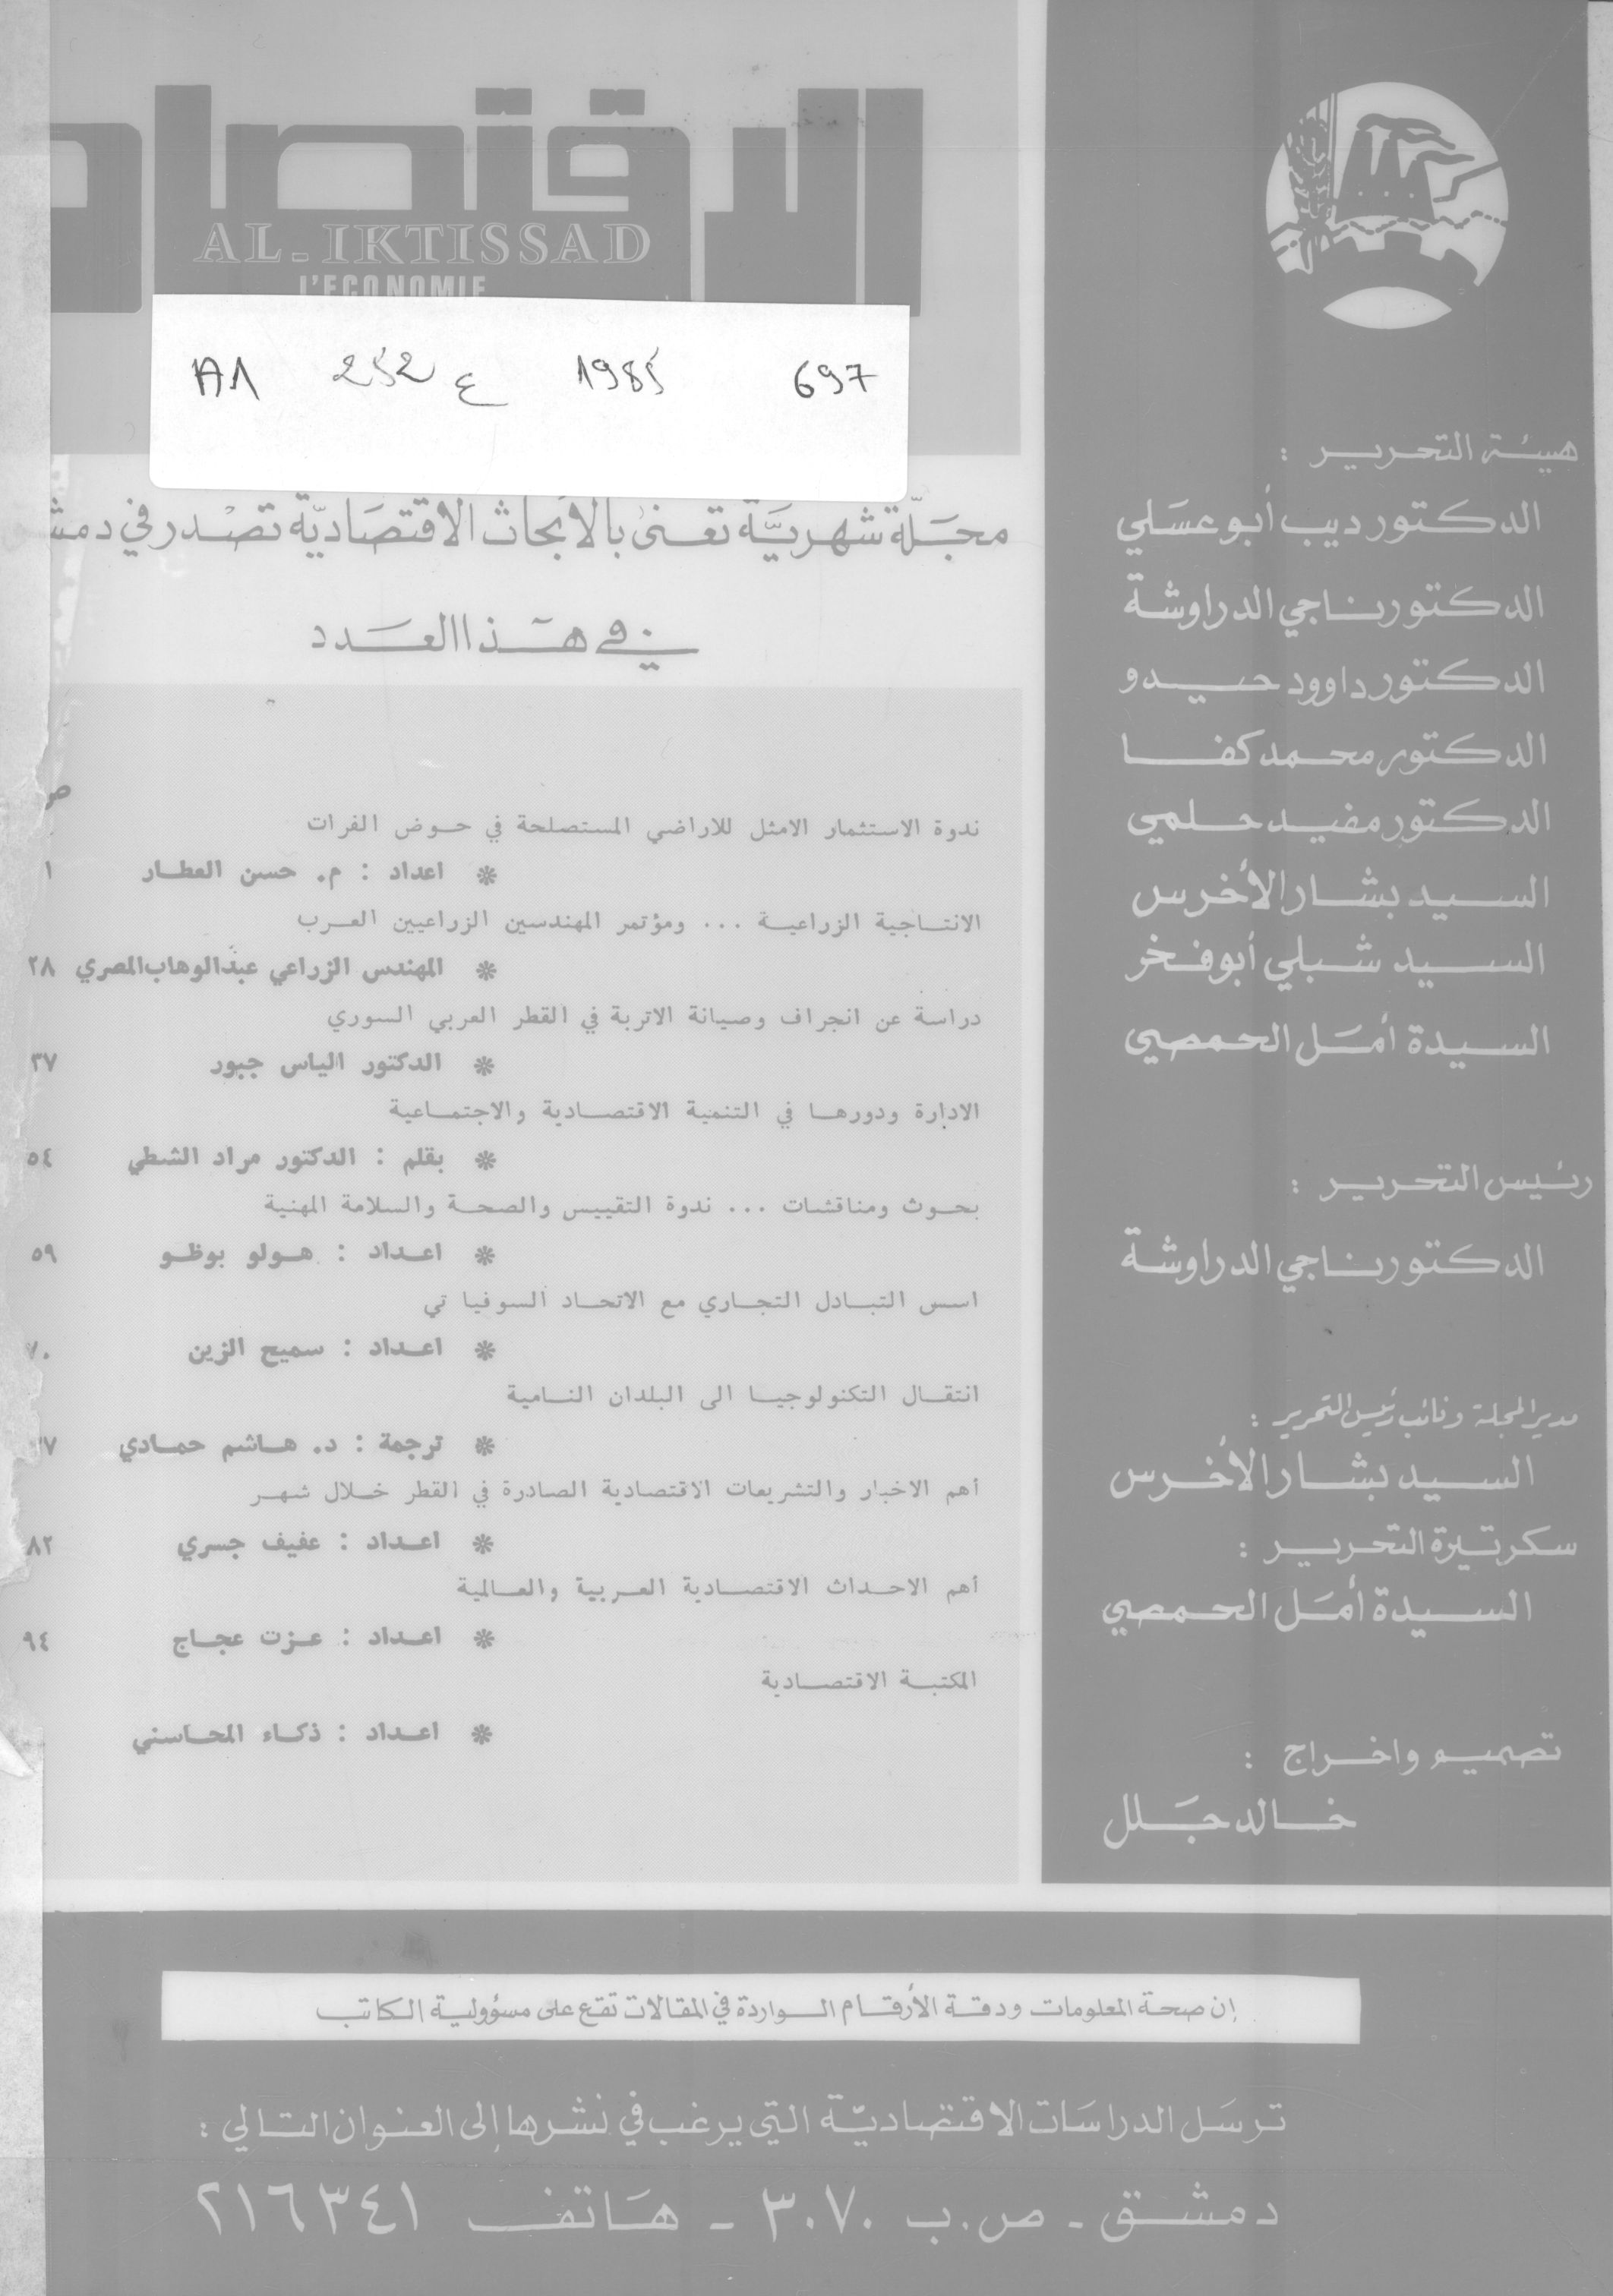 الاقتصاد
AL-IKTISSAD
L'ECONOMIE
A1 252 ع 1985 697
مجلة شهرية تعنى بالأبحاث الاقتصادية تصدر في دمشق
في هذا العدد
ص
ندوة الاستثمار الامثل للاراضي المستصلحة في حوض الفرات
* اعداد : م. حسن العطار ١
الانتاجية الزراعية ... ومؤتمر المهندسين الزراعيين العرب
* المهندس الزراعي عبدالوهاب المصري ٢٨
دراسة عن انجراف وصيانة الاتربة في القطر العربي السوري
* الدكتور الياس جبور ٣٧
الادارة ودورها في التنمية الاقتصادية والاجتماعية
* بقلم : الدكتور مراد الشطي ٥٤
بحوث ومناقشات ... ندوة التقييس والصحة والسلامة المهنية
* اعداد : هولو بوظو ٥٩
اسس التبادل التجاري مع الاتحاد السوفيا تي
* اعداد : سميح الزين ٧٠
انتقال التكنولوجيا الى البلدان النامية
* ترجمة : د. هاشم حمادي ٧٧
أهم الاخبار والتشريعات الاقتصادية الصادرة في القطر خلال شهر
* اعداد : عفيف جسري ٨٢
أهم الاحداث الاقتصادية العربية والعالمية
* اعداد : عزت عجاج ٩٤
المكتبة الاقتصادية
* اعداد : ذكاء المحاسني
هيئة التحرير :
الدكتور ديب أبو عسلي
الدكتور ناجي الدراوشة
الدكتور داوود حيدو
الدكتور محمد كفا
الدكتور مفيد حلمي
السيد بشار الأخرس
السيد شبلي أبو فخر
السيدة أمل الحمصي
رئيس التحرير :
الدكتور ناجي الدراوشة
مدير المجلة ونائب رئيس التحرير :
السيد بشار الأخرس
سكرتيرة التحرير :
السيدة أمل الحمصي
تصميم واخراج :
خالد جلل
إن صحة المعلومات ودقة الأرقام الواردة في المقالات تقع على مسؤولية الكاتب
ترسل الدراسات الاقتصادية التي يرغب في نشرها إلى العنوان التالي :
دمشق - ص.ب ٣٠٧٠ - هاتف ٢١٦٣٤١